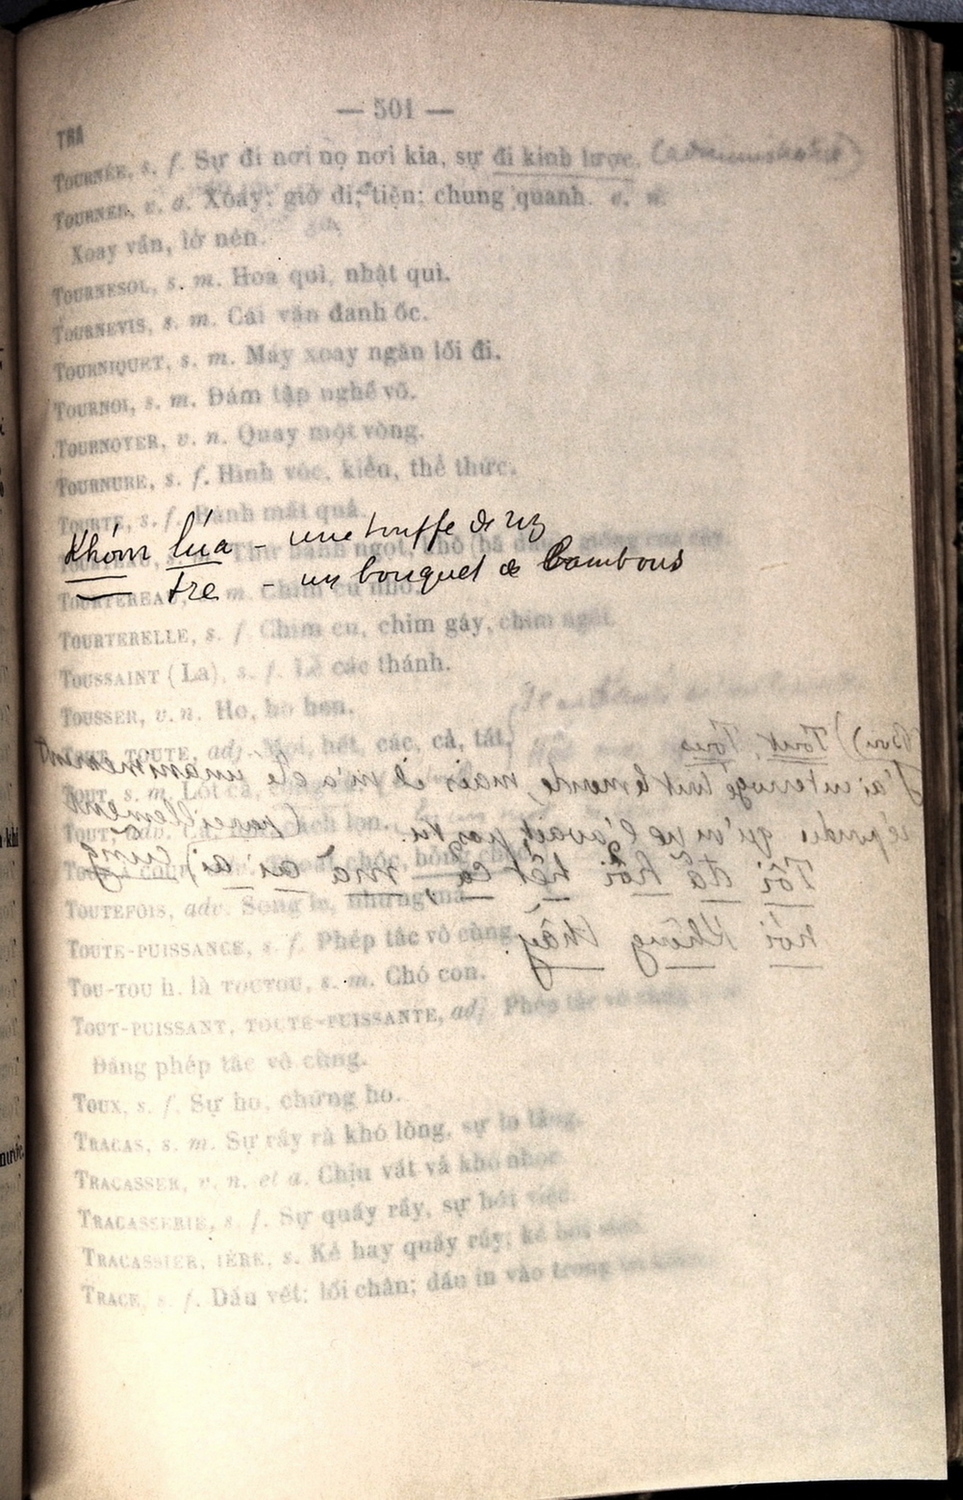 — 501 —
TRA
TOURNÉE, s. f. Sự đi nơi nọ nơi kia, sự đi kinh lược.
TOURNER, v. a. Xoáy; giở đi; tiện; chung quanh. v. n.
Xoay vần, lở nên.
TOURNESOL, s. m. Hoa quì, nhật quì.
TOURNEVIS, s. m. Cái vặn đanh ốc.
TOURNIQUET, s. m. Máy xoay ngăn lối đi.
TOURNOI, s. m. Đám tập nghề võ.
TOURNOYER, v. n. Quay một vòng.
TOURNURE, s. f. Hình vóc, kiểu, thể thức.
TOURTE, s. f. Bánh mặt quả.
Khóm lúa - une touffe de riz
tre - un bouquet de Bambous
TOURTEREAU, m. Chim cu nhỏ.
TOURTERELLE, s. f. Chim cu, chim gáy, chim ngói.
TOUSSAINT (La), s. f. Lễ các thánh.
TOUSSER, v. n. Ho, ho hen.
(Bis) Tout, Tous
TOUT, TOUTE, adj. Mọi, hết, các, cả, tất,
J'ai interrogé tout le monde, mais il m'a été unanimement
TOUT, s. m. Lốt cả,
répondu qu'on ne l'avait pas vu.
TOUT, adv.
Tôi đã hỏi hết cả mà ai ai cũng
TOUTEFOIS, adv. Song le, nhưng mà
nói không thấy
TOUTE-PUISSANCE, s. f. Phép tắc vô cùng.
TOU-TOU h. là TOUTOU, s. m. Chó con.
TOUT-PUISSANT, TOUTE-PUISSANTE, adj. Phép tắc vô cùng
Đấng phép tắc vô cùng.
TOUX, s. f. Sự ho, chứng ho.
TRACAS, s. m. Sự rầy rà khó lòng, sự lo lắng.
TRACASSER, v. n. et a. Chịu vất vả khó nhọc
TRACASSERIE, s. f. Sự quấy rầy, sự bới việc.
TRACASSIER, IÈRE, s. Kẻ hay quấy rầy; kẻ bới việc.
TRACE, s. f. Dấu vết; lối chân; dấu in vào trong